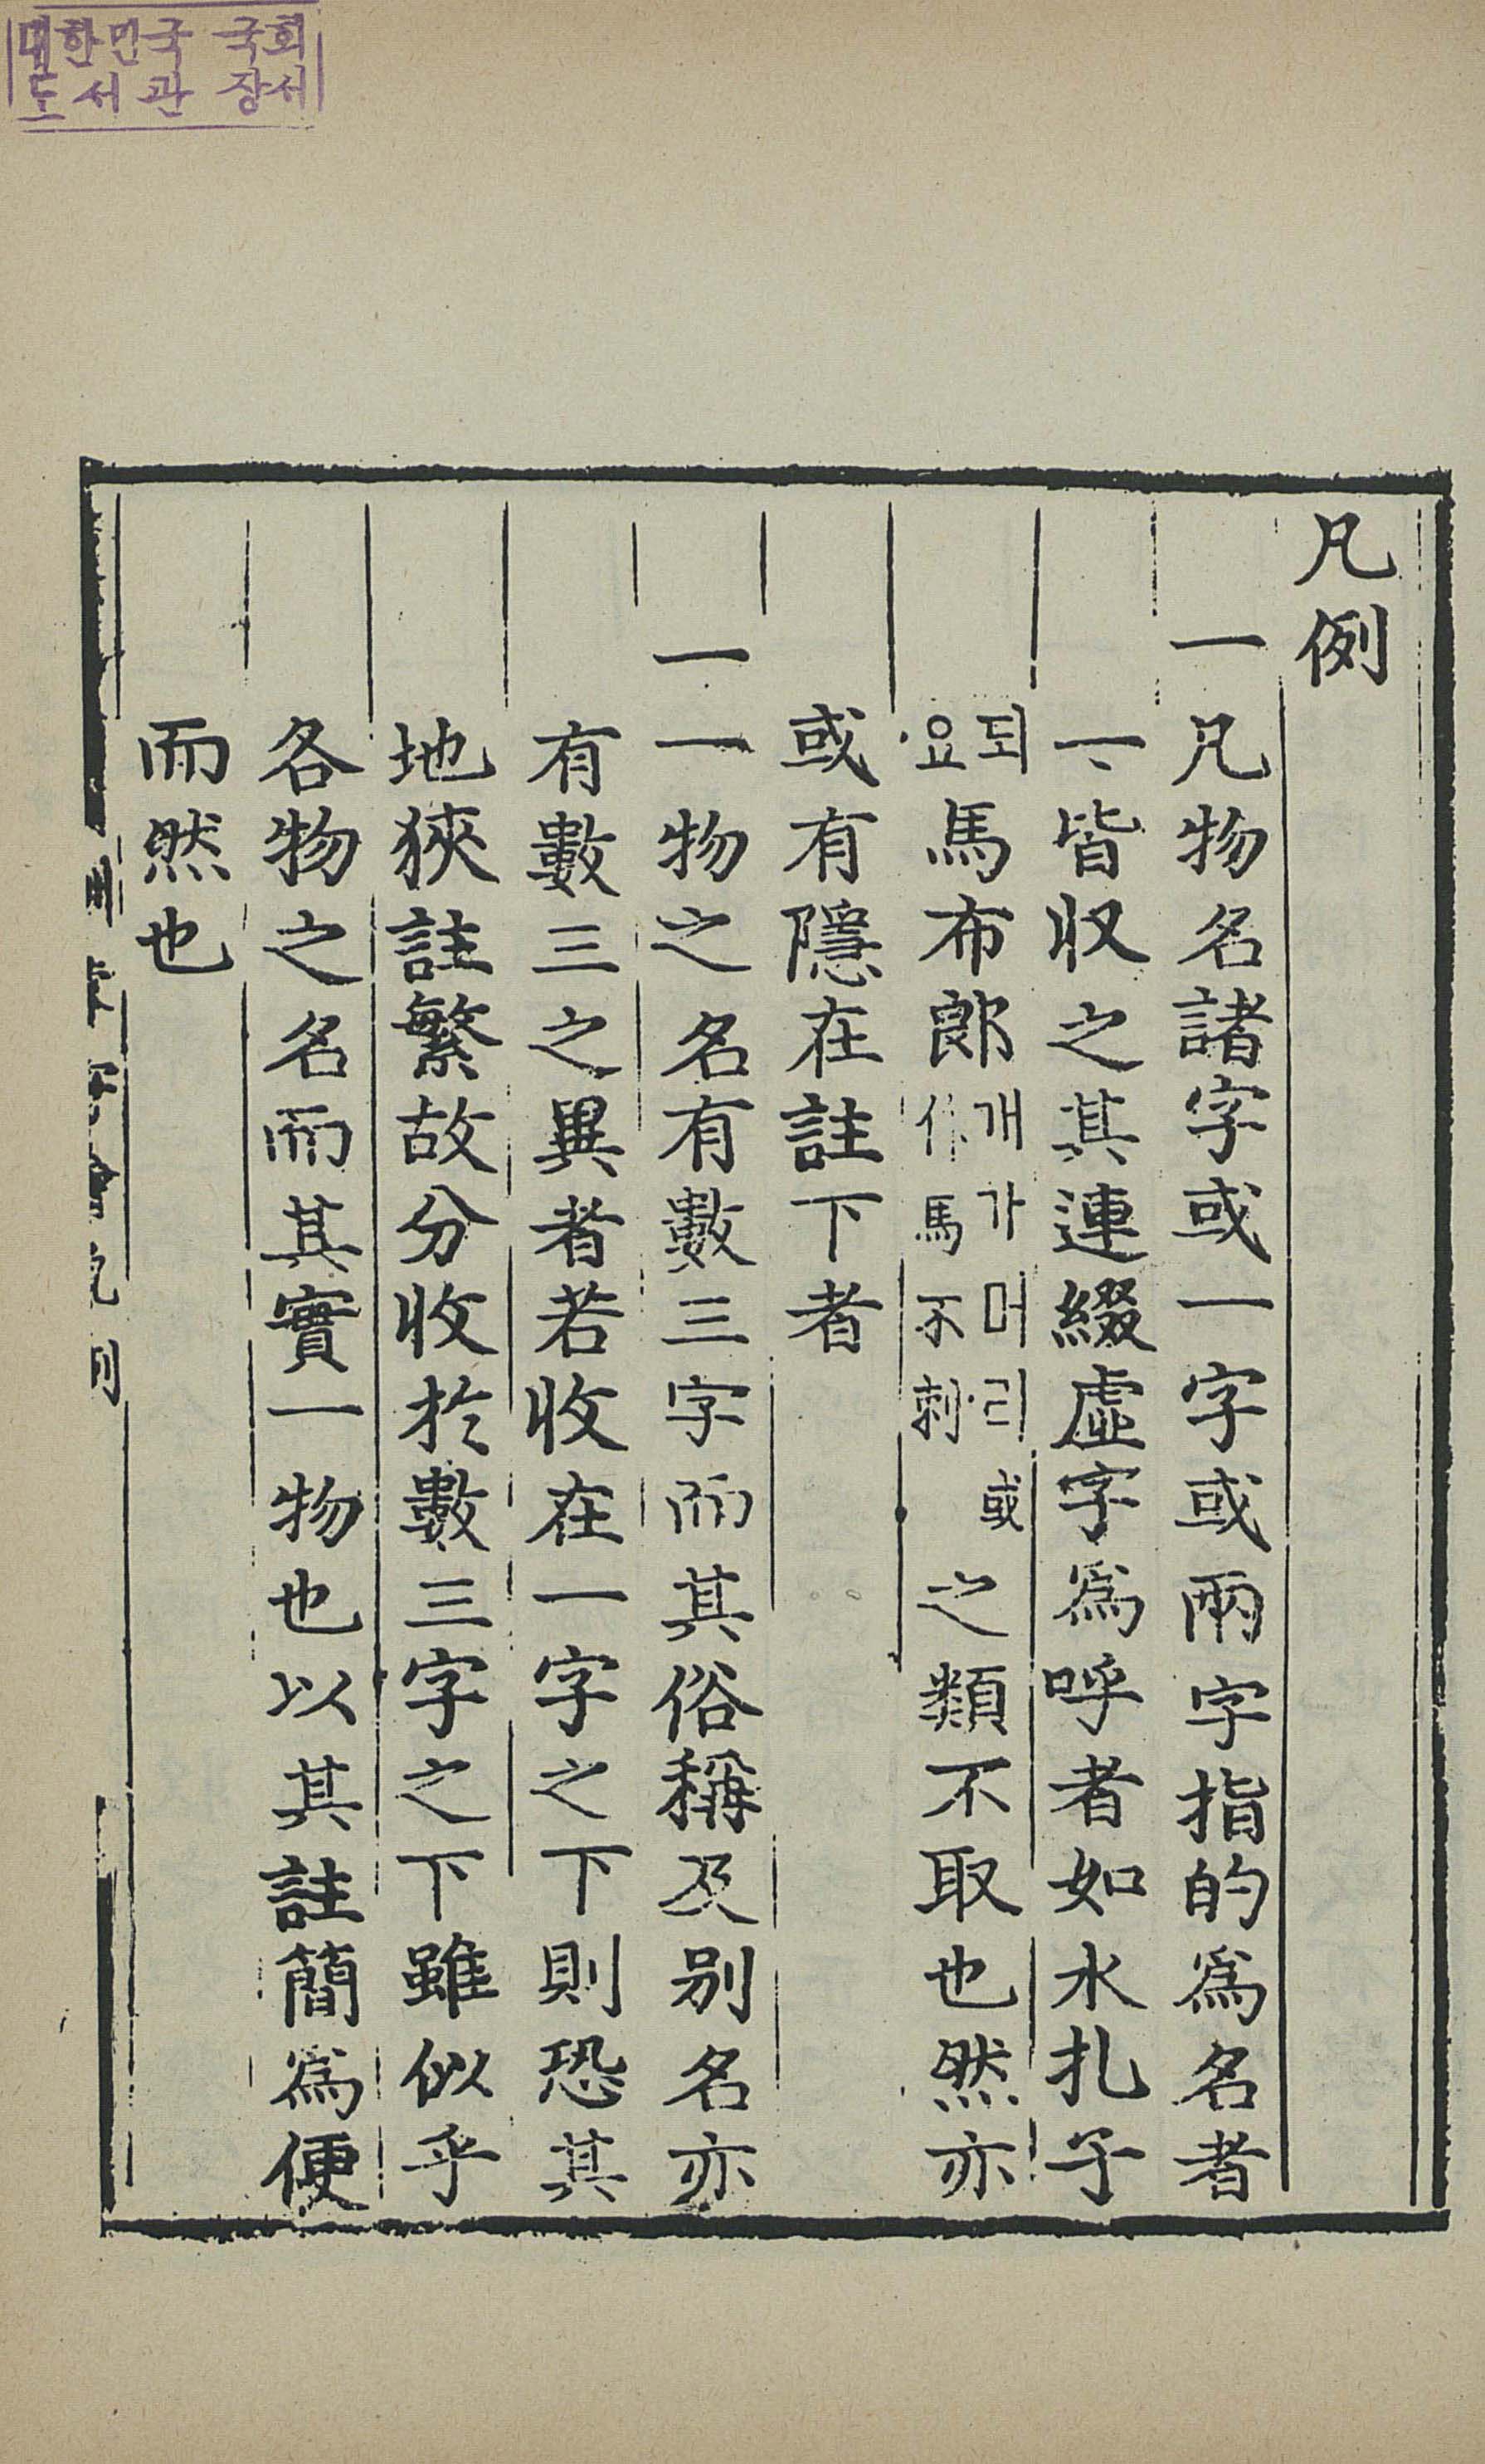 대한민국 국회
도서관 장서
凡例
一凡物名諸字或一字或兩字指的爲名者
一〻皆収之其連綴虛字爲呼者如水扎子
되요馬布郎개가머리或作馬不剌之類不取也然亦
或有隱在註下者
一一物之名有數三字而其俗稱及別名亦
有數三之異者若收在一字之下則恐其
地狹註繁故分收於數三字之下雖似乎
各物之名而其實一物也以其註簡爲便
而然也